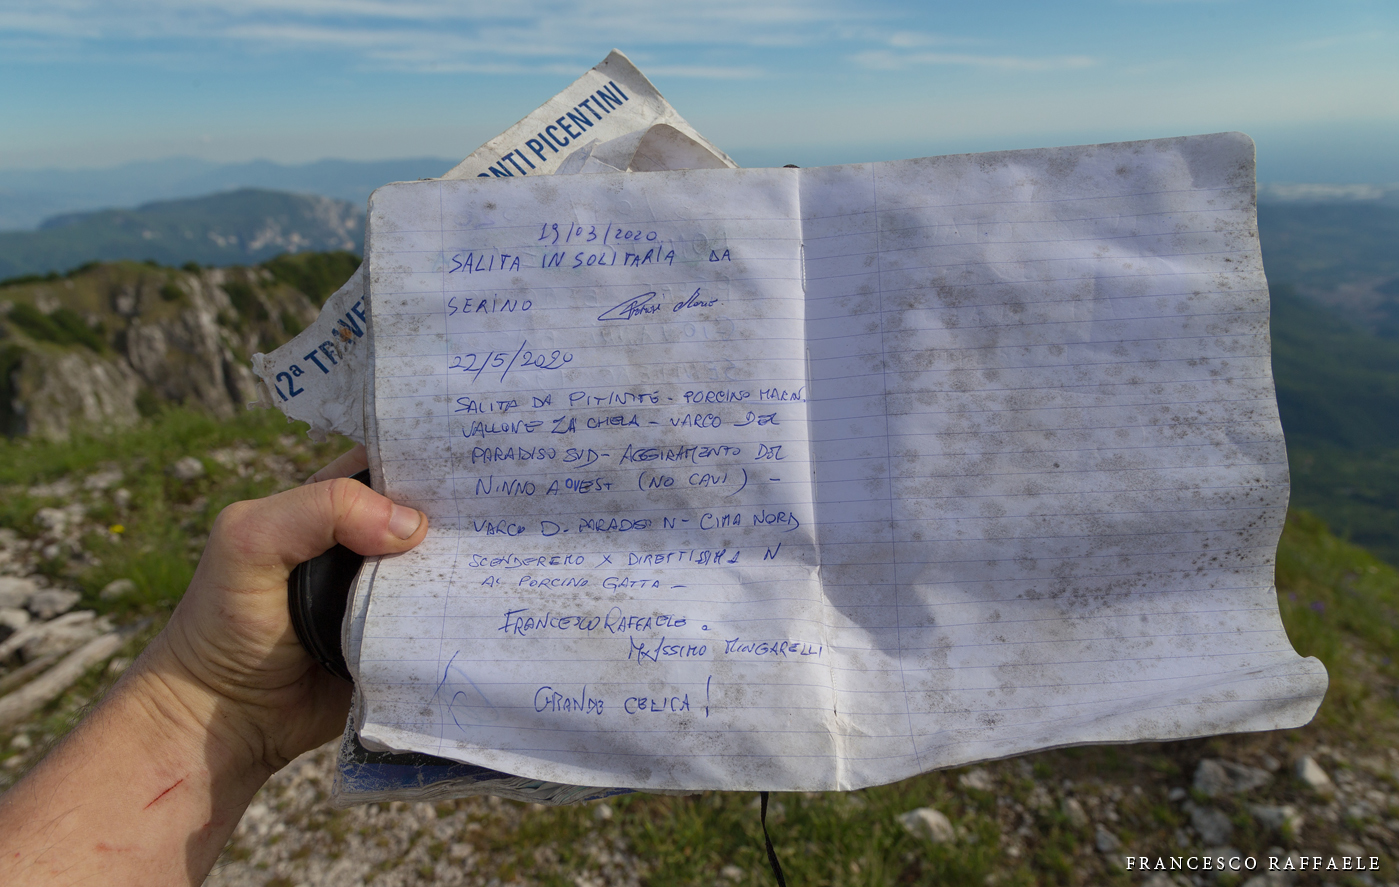 ONTI PICENTINI
12ª TRAVE
19/03/2020
SALITA IN SOLITARIA DA
SERINO
22/5/2020
SALITA DA PITINTTE - PORCINO MARN.
VALLONE ZA' CHECA - VARCO DEL
PARADISO SUD - AGGIRAMENTO DEL
NINNO A OVEST (NO CAVI) -
VARCO D. PARADISO N - CIMA NORD
SCENDEREMO X DIRETTISSIMA N
AL PORCINO GATTA -
FRANCESCO RAFFAELE.
MASSIMO MINGARELLI
GRANDE CELICA!
FRANCESCO RAFFAELE